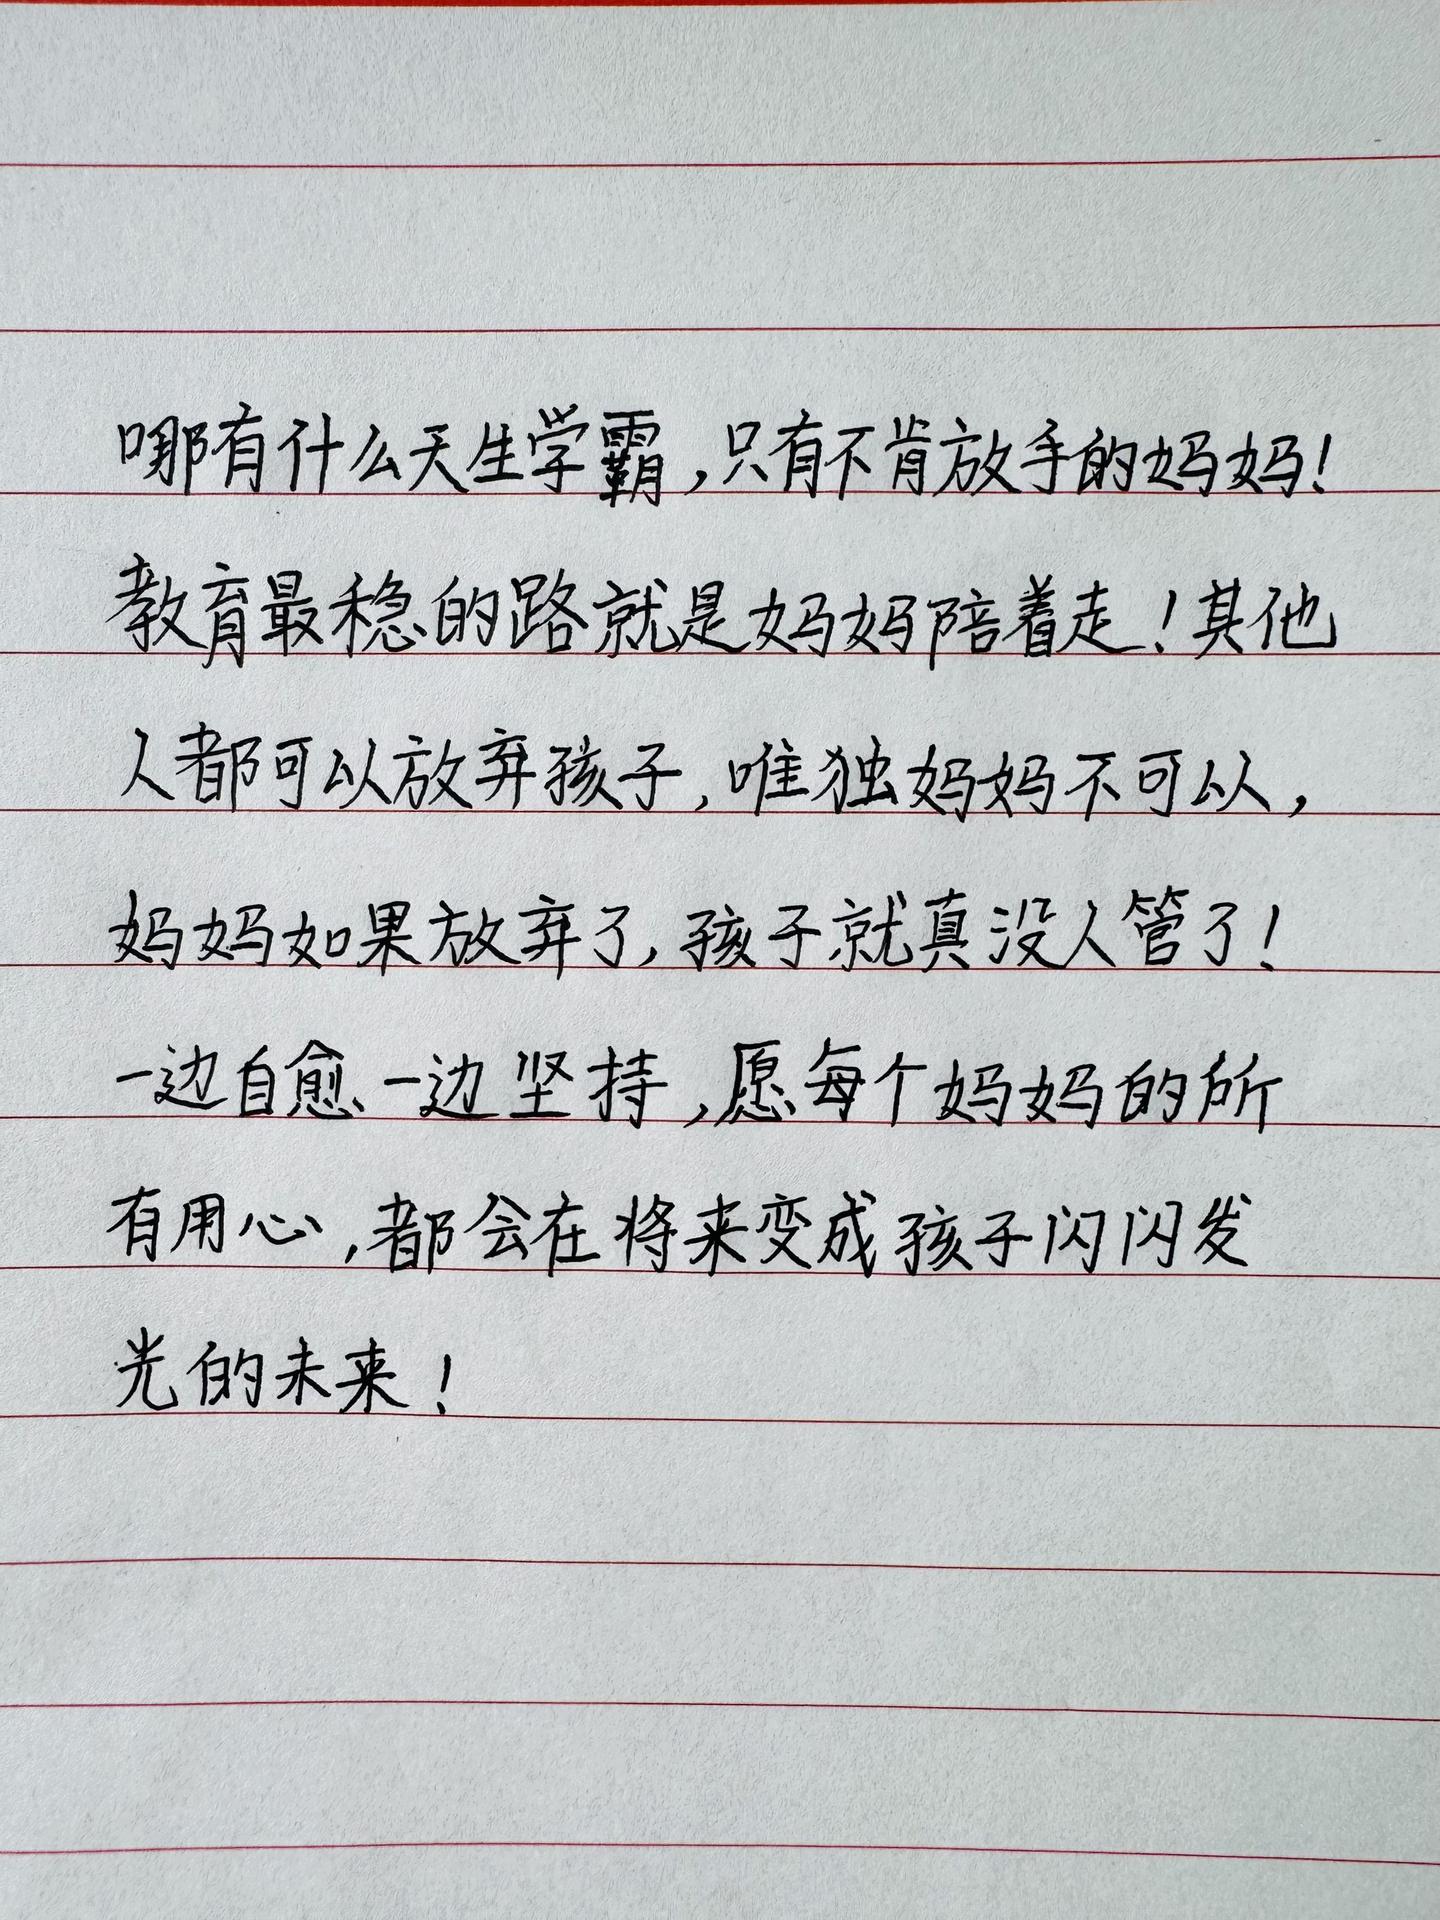 哪有什么天生学霸,只有不肯放手的妈妈!
教育最稳的路就是妈妈陪着走!其他
人都可以放弃孩子,唯独妈妈不可以,
妈妈如果放弃了,孩子就真没人管了!
一边自愈一边坚持,愿每个妈妈的所
有用心,都会在将来变成孩子闪闪发
光的未来!